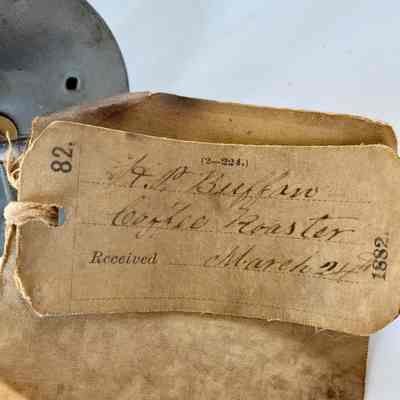 82.
(2—224.)
H. P. Buffon
Coffee Roaster
Received March 24th
1882.